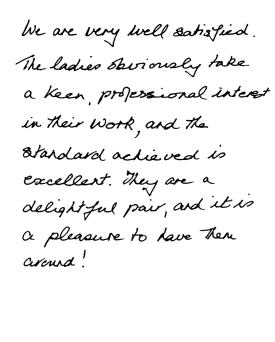 We are very well satisfied.
The ladies obviously take
a keen, professional interest
in their work, and the
standard achieved is
excellent. They are a
delightful pair, and it is
a pleasure to have them
around!